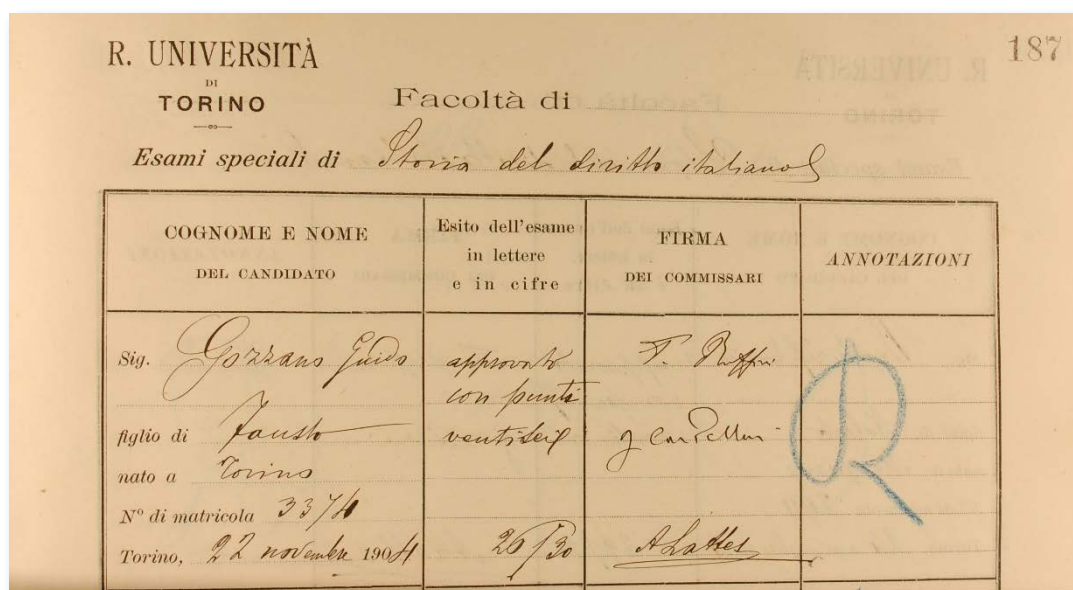 187
R. UNIVERSITÀ
DI
TORINO
Facoltà di
Esami speciali di Storia del diritto italiano
COGNOME E NOME
DEL CANDIDATO
Esito dell'esame
in lettere
e in cifre
FIRMA
DEI COMMISSARI
ANNOTAZIONI
Sig. Gozzano Guido
figlio di Fausto
nato a Torino
Nº di matricola
Torino, 22 novembre 1904
approvato
con punti
ventisei
26/30
F. Ruffini
A Lattes
R